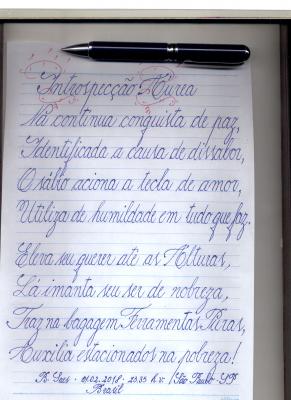 Introspecção Áurea
Na contínua conquista de paz,
Identificada a causa de dissabor,
O sábio aciona a tecla de amor,
Utiliza de humildade em tudo que faz.
Eleva seu querer até as Alturas,
Lá imanta seu ser de nobreza,
Traz na bagagem Ferramentas Puras,
Auxilia estacionados na pobreza!
01.02.2018 - 23:35 h.v. / São Paulo - SP
Brasil